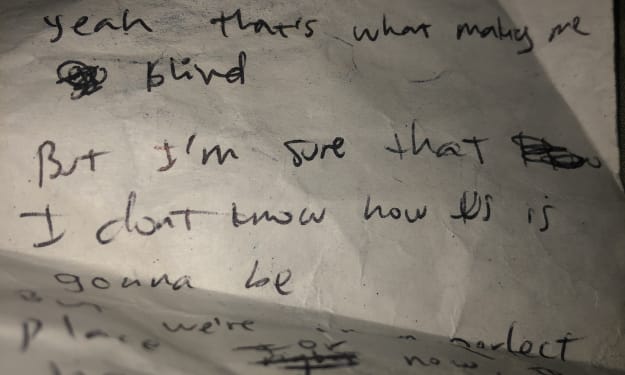 yeah that's what makes me
blind
But I'm sure that
I don't know how is
gonna be
we're perfect
place now